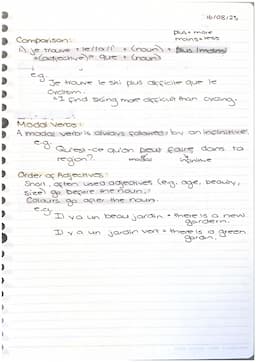 16/08/23
plus = more
moins = less
Comparison:
je trouve + le/la/l' + (noun) + plus/moins
+ (adjective) + que + (noun)
e.g.
Je trouve le ski plus difficile que le
cyclism.
I find skiing more difficult than cycling.
Modal Verbs:
A modal verb is always followed by an infinitive.
e.g.
Qu'est-ce qu'on peut faire dans ta
région?
modal
infinitive
Order of Adjectives:
Short, often used adjectives (e.g. age, beauty,
size) go before the noun.
Colours go after the noun.
e.g.
Il y a un beau jardin = there is a new
garden.
Il y a un jardin vert = there is a green
garden.